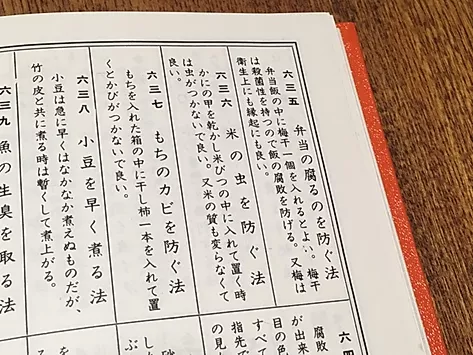 六三五 弁当の腐るのを防ぐ法
弁当飯の中に梅干一個を入れるとよい。梅干
は殺菌性を持つので飯の腐敗を防げる。又梅は
衛生上にも縁起にも良い。
六三六 米の虫を防ぐ法
かにの甲を乾かし米びつの中に入れて置く時
は虫がつかない。又米の質も変らなくて
良い。
六三七 もちのカビを防ぐ法
もちを入れた箱の中に干し柿一本を入れて置
くとかびがつかないで良い。
六三八 小豆を早く煮る法
小豆は急に早くはなかなか煮えぬものだが、
竹の皮と共に煮る時は暫くして煮上がる。
六三九 魚の生臭を取る法
六四
腐敗
が出来
目の色
すべて
指先で
の見